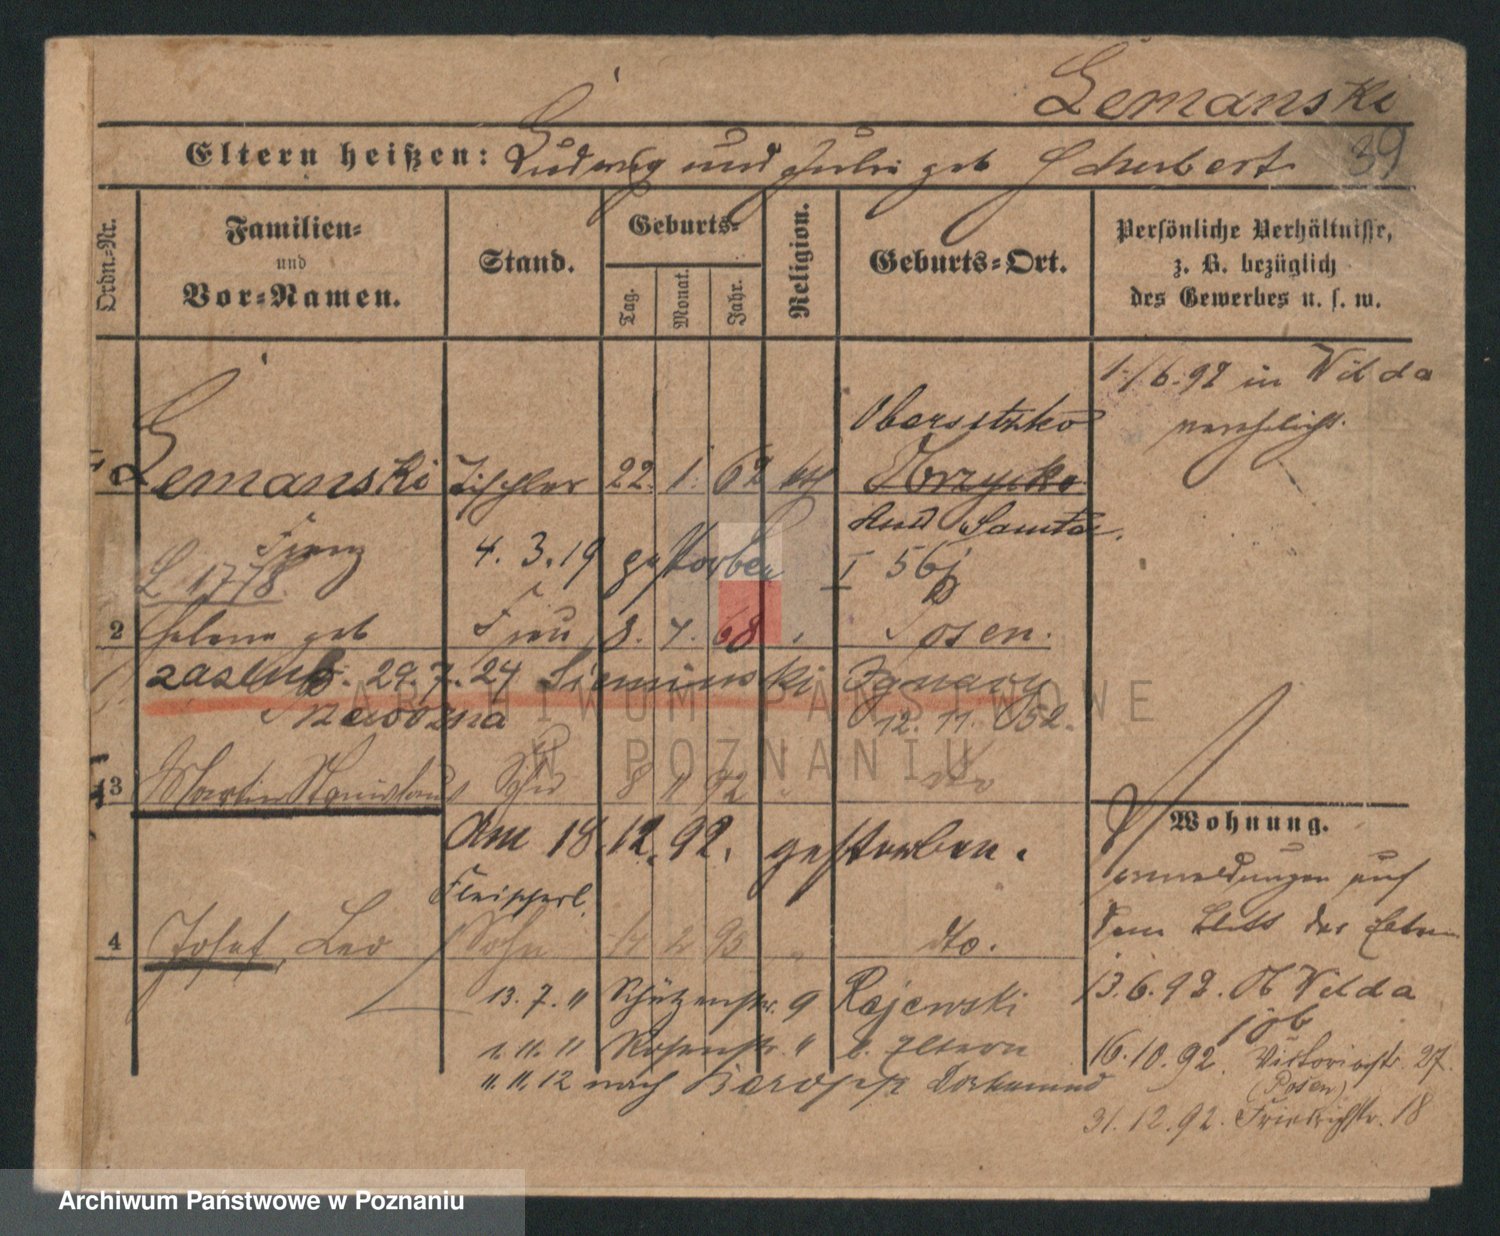 Lemanski
39
Eltern heißen: Ludwig und Julie geb Schubert
Ordn.-Nr.
Familien-
und
Vor-Namen.
Stand.
Geburts-
Tag.
Monat.
Jahr.
Religion.
Geburts-Ort.
Persönliche Verhältnisse,
z. B. bezüglich
des Gewerbes u. s. w.
1./6.92 in Wilda
verehelicht.
Obersitzko
Lemanski Tischler 22. 1. 62 kth Wrzycko
Kreis Samter.
Franz 4. 3. 19 gestorben I 56j
L 1778.
2 Helene geb Frau 8. 4. 68 Posen.
zaślub. 29.7.24 Sieminski Ignacy
12. 11. 52.
3 Martin Stanislaus Sohn 8 11 92 dto
Am 18.12.92. gestorben.
Fleischerl.
4 Josef, Leo Sohn 14 2 93 " dto.
13. 7. 11 Schützenstr. 9 Rajewski
1. 11. 11 Rosenstr. " b. Eltern
11. 11. 12 nach Barop Kr Dortmund
Wohnung.
Anmeldungen auf
dem Blatt der Eltern
13.6.92. Wilda
16.10.92. Victoriastr. 27.
(Posen)
31.12.92. Friedrichstr. 18
ARCHIWUM PAŃSTWOWE
W POZNANIU
Archiwum Państwowe w Poznaniu